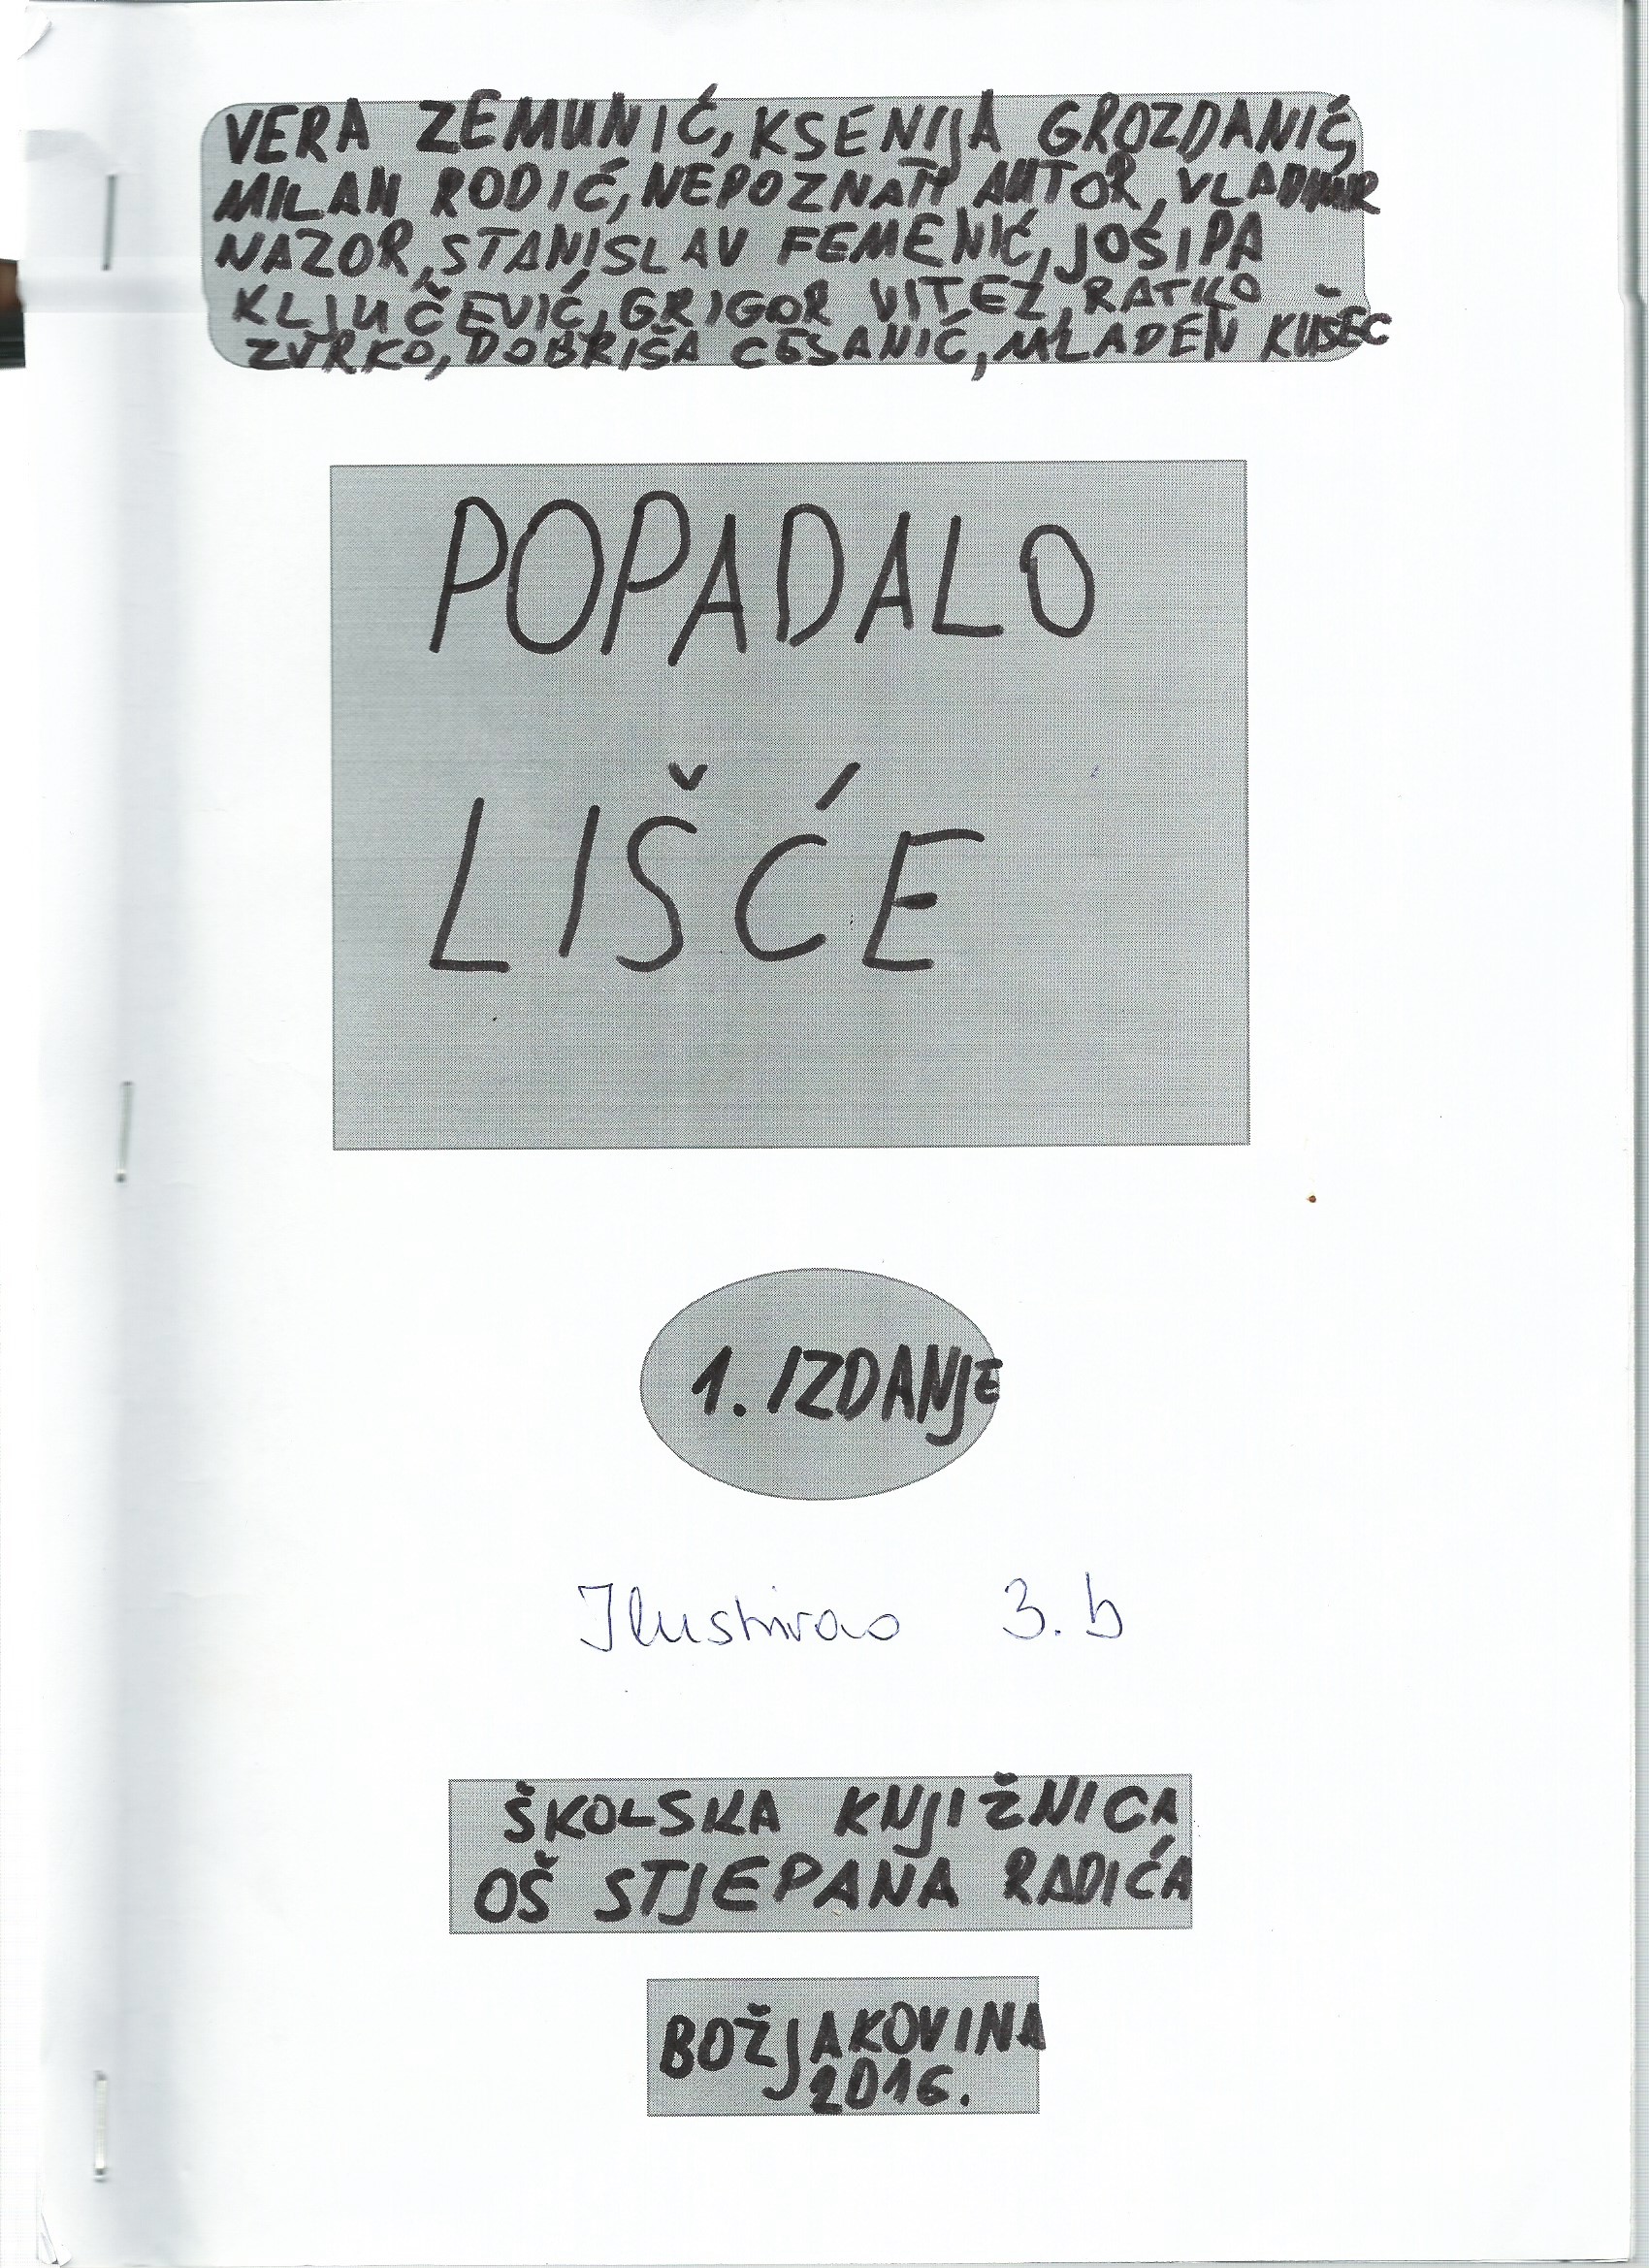 VERA ZEMUNIĆ, KSENIJA GROZDANIĆ,
MILAN RODIĆ, NEPOZNATI AUTOR, VLADIMIR
NAZOR, STANISLAV FEMENIĆ, JOSIPA
KLJUČEVIĆ, GRIGOR VITEZ, RATKO
ZVRKO, DOBRIŠA CESARIĆ, MLADEN KUŠEC
POPADALO
LIŠĆE
1. IZDANJE
Ilustrirao 3. b
ŠKOLSKA KNJIŽNICA
OŠ STJEPANA RADIĆA
BOŽJAKOVINA
2016.